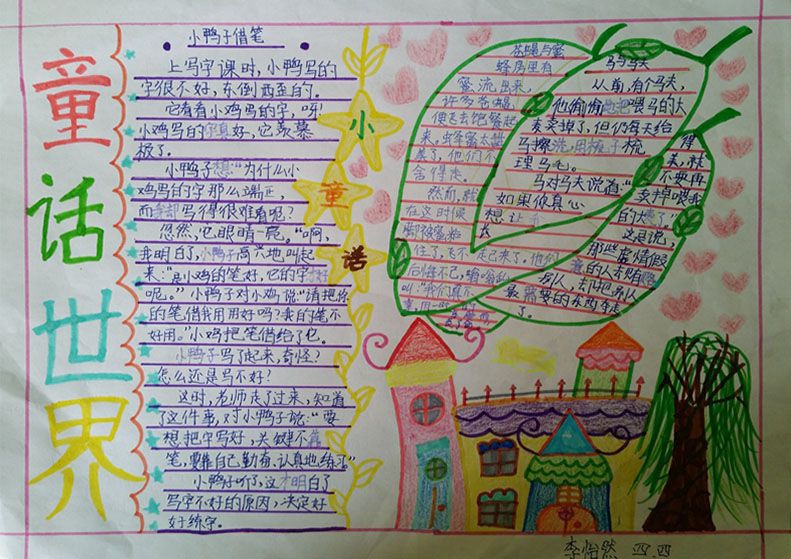 童话世界
小鸭子借笔
上写字课时，小鸭写的
字很不好，东倒西歪的。
它看看小鸡写的字，呀！
小鸡写的字真好，它羡慕
极了。
小鸭子想“为什么小
鸡写的字那么端正，
而我却写得很难看呢？
忽然，它眼睛一亮。“啊，
我明白了，小鸭子高兴地叫起
来：“是小鸡的笔好，它的字才好
呢。”小鸭子对小鸡说：“请把你
的笔借我用用好吗？我的笔不
好用。”小鸡把笔借给了它。
小鸭子写了起来，奇怪？
怎么还是写不好？
这时，老师走了过来，知道
了这件事，对小鸭子说：“要
想把字写好，关键不靠
笔，要靠自己勤奋、认真地练习。”
小鸭子听了，这才明白了
写字不好的原因，决定好
好练字。
小
童
话
苍蝇与蜜
蜂房里有
蜜流出来，
许多苍蝇
便飞去饱餐起
来，蜂蜜太甜
美了，他们不
舍得走。
然而，就
在这时候
脚被蜜粘
住了，飞不走起来了。他们
后悔不已，嗡嗡乱
叫：“我们真不
马与马夫
从前，有个马夫，
他偷偷地把喂马的大
麦卖掉了，但仍每天给
马擦洗，用梳子梳
理马毛。
马对马夫说着：“
如果你真心
想让我
长得
美，就
不要再
卖掉喂我
的大麦了。”
这是说，
那些虚情假
意的人去贿赂
别人，却把别人
最需要的东西夺走
了。
李怡然 四.四